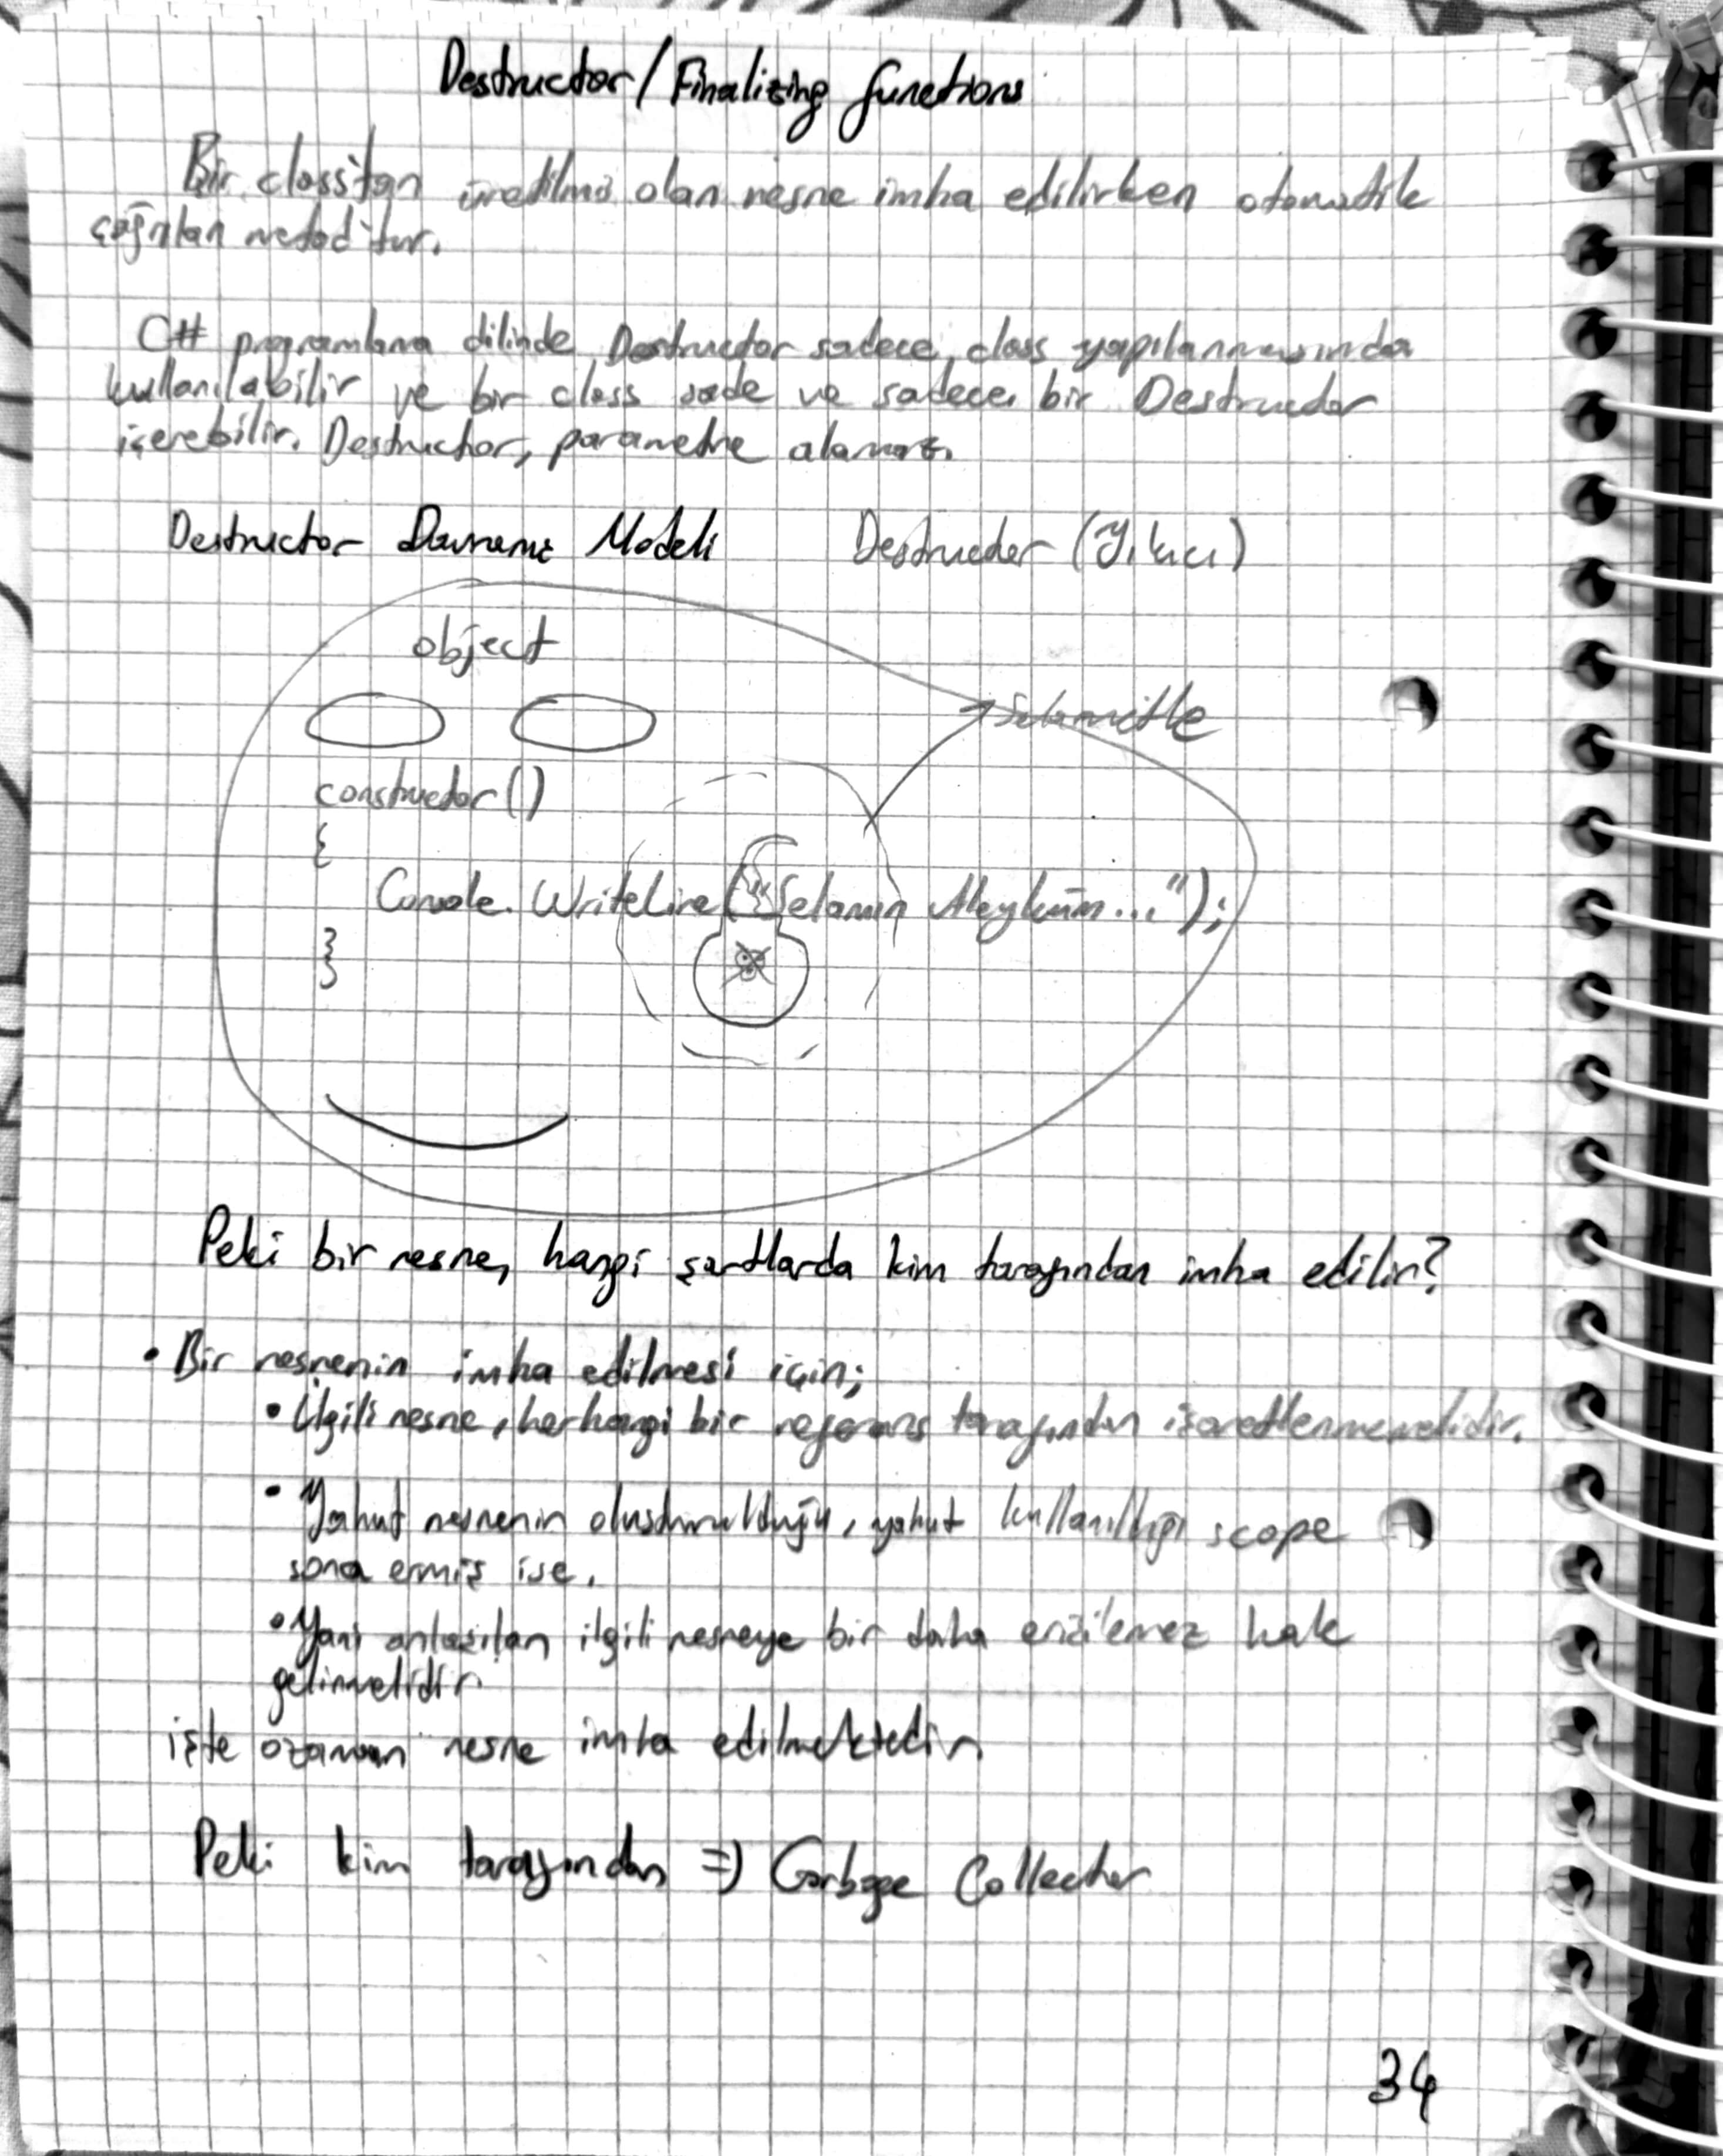 Destructor/Finalizing functions
Bir class'tan üretilmiş olan nesne imha edilirken otomatik
çağrılan metod'tur.
C# programlama dilinde Destructor sadece class yapılanmasında
kullanılabilir ve bir class sade ve sadece bir Destructor
içerebilir. Destructor, parametre alamaz.
Destructor Davranış Modeli Destructor (Yıkıcı)
object
Selametle
constructor()
{
Console.WriteLine("Selamın Aleyküm...");
}
Peki bir nesne, hangi şartlarda kim tarafından imha edilir?
• Bir nesnenin imha edilmesi için;
• İlgili nesne, herhangi bir referans tarafından işaretlenmemelidir.
• Yahut nesnenin oluşturulduğu, yahut kullanıldığı scope
sona ermiş ise.
• Yani anlaşılan ilgili nesneye bir daha erişilemez hale
gelinmelidir.
işte ozaman nesne imha edilmektedir.
Peki kim tarafından => Garbage Collector
34